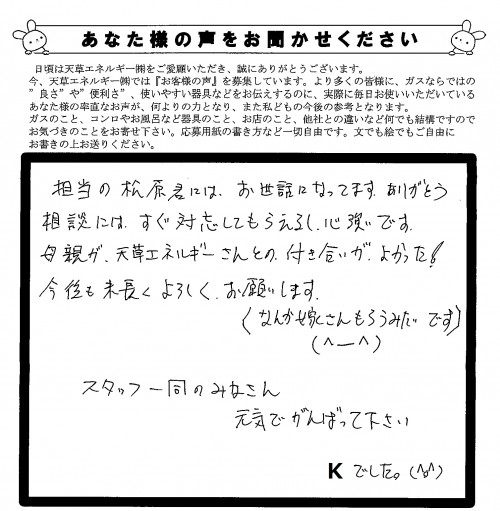 あなた様の声をお聞かせください
日頃は天草エネルギー㈱をご愛顧いただき、誠にありがとうございます。
今、天草エネルギー㈱では『お客様の声』を募集しています。より多くの皆様に、ガスならではの
”良さ”や”便利さ”、使いやすい器具などをお伝えするのに、実際に毎日お使いいただいている
あなた様の率直なお声が、何よりの力となり、また私どもの今後の参考となります。
ガスのこと、コンロやお風呂など器具のこと、お店のこと、他社との違いなど何でも結構ですので
お気づきのことをお寄せ下さい。応募用紙の書き方など一切自由です。文でも絵でもご自由に
お書きの上お送りください。
担当の松原君には、お世話になってます。ありがとう
相談には、すぐ対応してもらえるし、心強いです。
母親が、天草エネルギーさんとの、付き合いが、よかった!
今後も末長くよろしく、お願いします。
(なんか嫁さんもらうみたいです)
(^ー^)
スタッフ一同のみなさん
元気でがんばって下さい
K でした。(^o^)